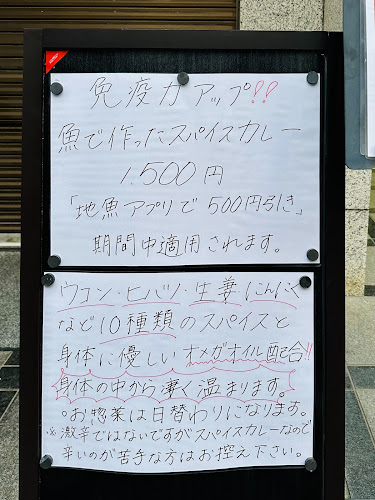 免疫力アップ!!
魚で作ったスパイスカレー
1,500円
「地魚アプリで500円引き」
期間中適用されます。
ウコン・ヒバツ・生姜 にんにく
など10種類のスパイスと
身体に優しいオメガオイル配合!!
身体の中から凄く温まります。
○お惣菜は日替わりになります。
※激辛ではないですがスパイスカレーなので
辛いのが苦手な方はお控え下さい。